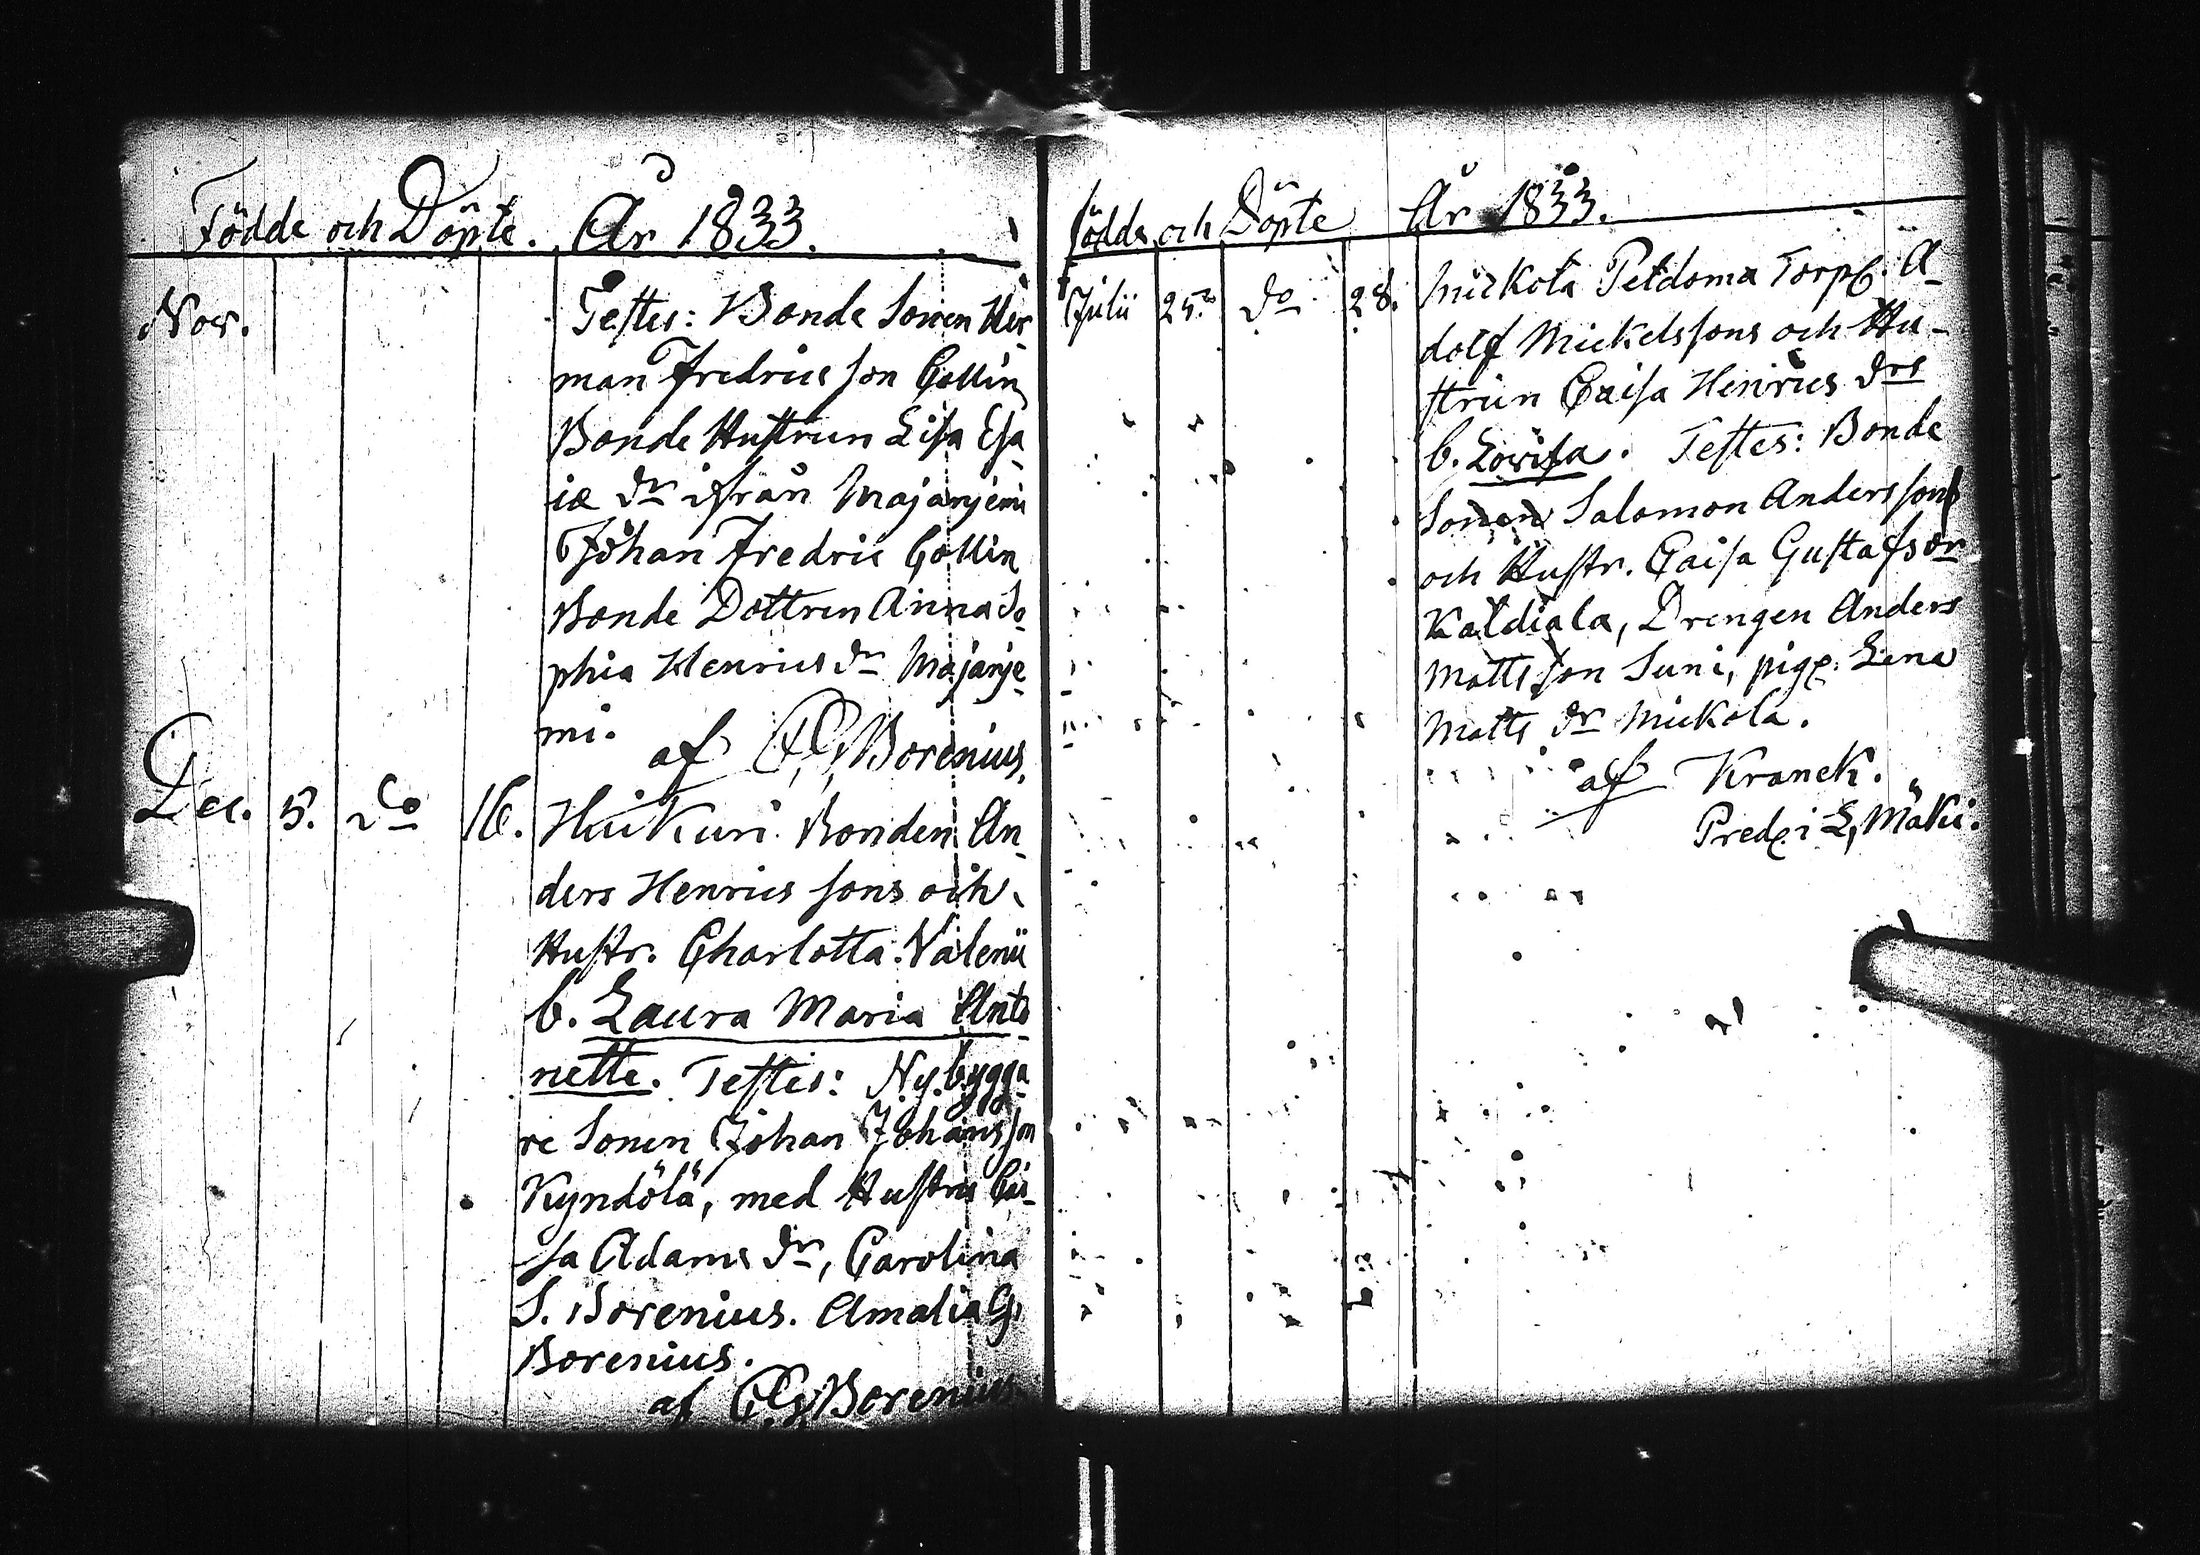 Födde och Döpte. År 1833.
Nov.
Testes: Bonde Sonen Her-
man Fredricsson Collin
Bonde Hustrun Lisa Esa-
iæ dr ifrån Majanjemi
Johan Fredric Collin
Bonde Dottren Anna So-
phia Henrics dr Majanje-
mi.
af C. G. Borenius.
Dec. 5. do 16. Huikuri Bonden An-
ders Henrics sons och
Hustr. Charlotta Valenii
b. Laura Maria Anto-
nette. Testes: Nybygga-
re Sonen Johan Johansson
Kyndölä, med Hustru Cai-
sa Adams dr, Carolina
S. Borenius. Amalia G.
Borenius.
af C. G. Borenius
Födde och Döpte År 1833.
Julii 25. do 28. Mickola Peldoma Torp. A-
dolf Mickelssons och Hu-
strun Caisa Henrics drs
b. Lovisa. Testes: Bonde
Sonen Salomon Anderssons
och Hustr. Caisa Gustafs dr
Kaldiala, Drengen Anders
Mattsson Suni, pig. Lena
Matts dr Mickola.
af Kranck.
Pred. i L, Mäki.